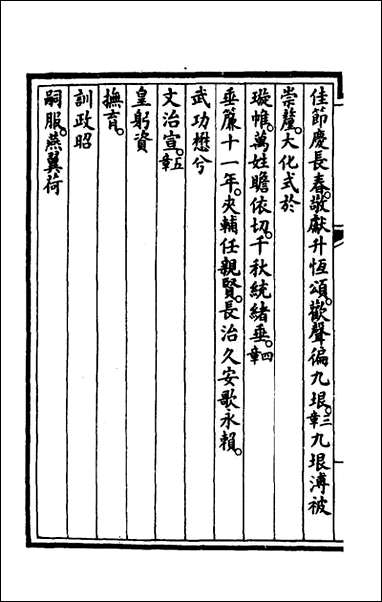 佳節慶長春。敬獻升恆頌。歡聲徧九垠。三章九垠溥被
崇釐。大化式於
璇帷。萬姓瞻依切。千秋統緒垂。四章
垂簾十一年。夾輔任親賢。長治久安歌永賴。
武功懋兮
文治宣。五章
皇躬資
撫育。
訓政昭
嗣服。燕翼荷